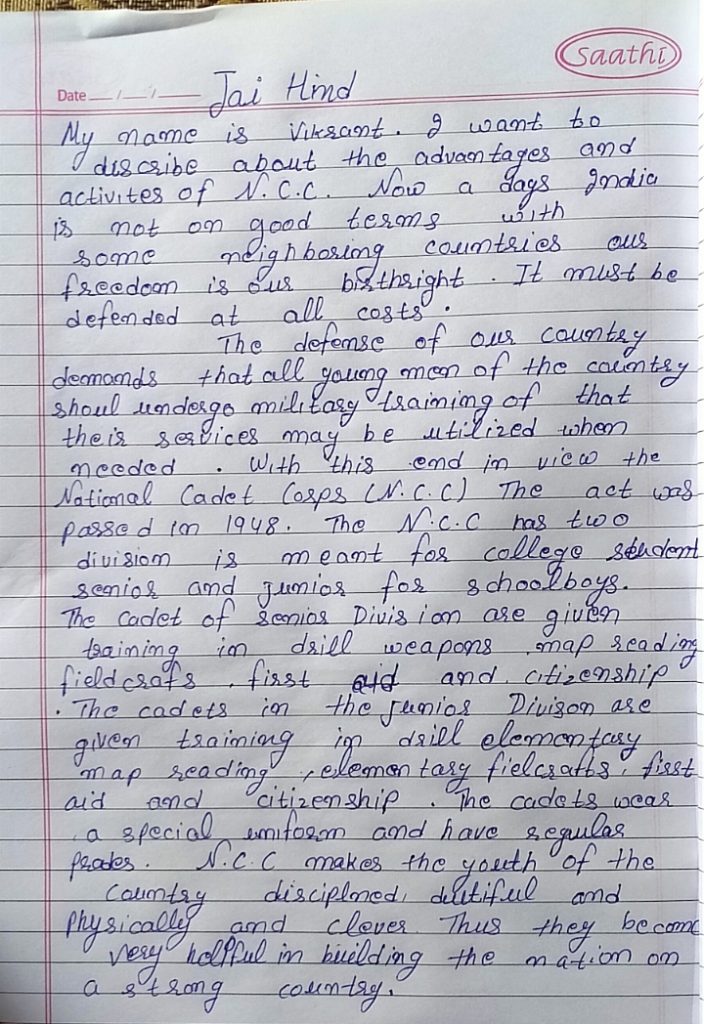 saathi
Date __/__/__ Jai Hind
My name is Vikrant. I want to
discribe about the advantages and
activites of N.C.C. Now a days India
is not on good terms with
some neighboring countries our
freedom is our birthright. It must be
defended at all costs.
The defense of our country
demands that all young men of the country
shoul undergo military training of that
their services may be utilized when
needed. With this end in view the
National Cadet Corps (N.C.C) The act was
passed in 1948. The N.C.C has two
division is meant for college student
senior and junior for schoolboys.
The cadet of senior Division are given
training in drill weapons, map reading
fieldcrafs, first aid and citizenship
. The cadets in the junior Divison are
given training in drill elementary
map reading, elementary fielcrafts, first
aid and citizenship. The cadets wear
a special uniform and have regular
prades. N.C.C makes the youth of the
country disciplned, dutiful and
physically and clever. Thus they become
very helpful in building the nation on
a strong country.